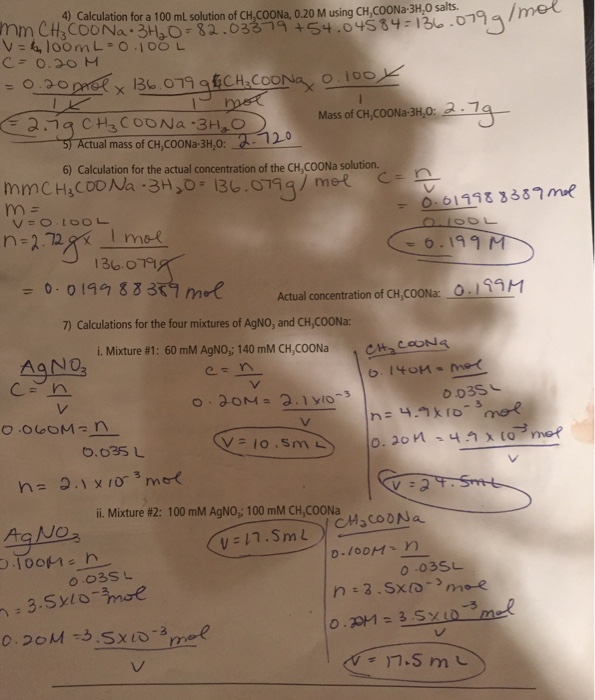 4) Calculation for a 100 mL solution of CH₃COONa, 0.20 M using CH₃COONa·3H₂O salts.
mm CH₃COONa·3H₂O = 82.03379 + 54.04584 = 136.079 g/mol
V = 100mL = 0.100 L
C = 0.20 M
= 0.20 mol x 136.079 g CH₃COONa x 0.100 L
1 L 1 mol 1
Mass of CH₃COONa·3H₂O: 2.7g
= 2.7g CH₃COONa·3H₂O
5) Actual mass of CH₃COONa·3H₂O: 2.720
6) Calculation for the actual concentration of the CH₃COONa solution.
mm CH₃COONa·3H₂O = 136.079g/mol
m =
V = 0.100L
n = 2.72g x 1 mol
136.079g
= 0.019988389 mol
C = n
V
= 0.019988389 mol
0.100L
= 0.199 M
Actual concentration of CH₃COONa: 0.199M
7) Calculations for the four mixtures of AgNO₃ and CH₃COONa:
i. Mixture #1: 60 mM AgNO₃; 140 mM CH₃COONa
AgNO₃
C = n
V
0.060M = n
0.035L
n = 2.1 x 10⁻³ mol
C = n
V
0.20M = 2.1x10⁻³
V
V = 10.5mL
CH₃COONa
0.140M = mol
0.035L
n = 4.9x10⁻³ mol
0.20M = 4.9 x 10⁻³ mol
V
V = 24.5mL
ii. Mixture #2: 100 mM AgNO₃; 100 mM CH₃COONa
AgNO₃
0.100M = n
0.035L
n = 3.5x10⁻³mol
0.20M = 3.5x10⁻³ mol
V
V = 17.5mL
CH₃COONa
0.100M = n
0.035L
n = 3.5x10⁻³ mol
0.20M = 3.5x10⁻³ mol
V
V = 17.5mL